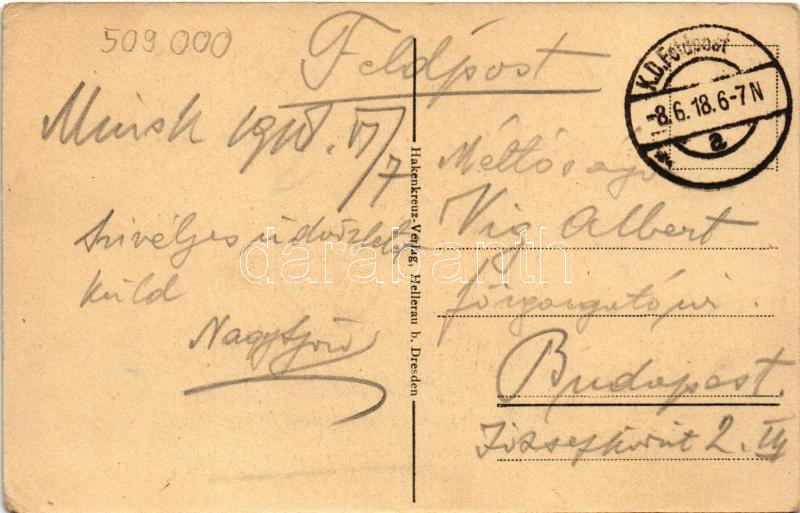 509000
Feldpost
K.D. Feldpost
-8.6.18.6-7N
a
Minsk 1918. VI/7
Szivélyes üdvözlet
küld
Hakenkreuz-Verlag, Hellerau b. Dresden
Méltóságos
Vig Albert
főigazgató úr.
Budapest.
Józsefkörút 2.
darabanth